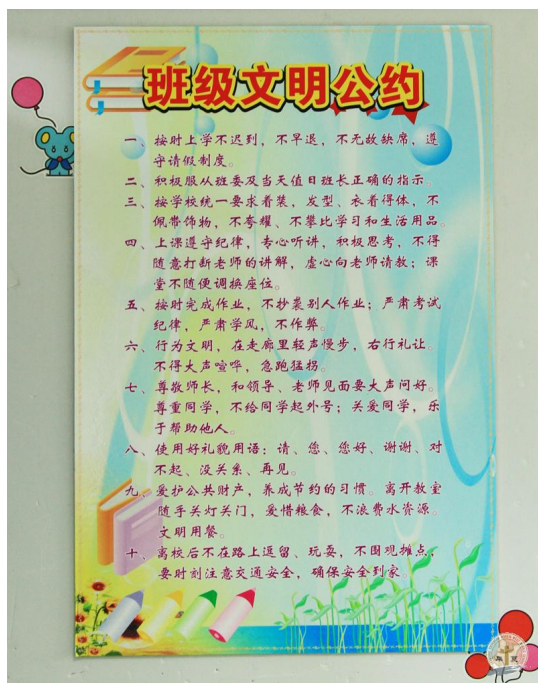 班级文明公约
一、按时上学不迟到，不早退，不无故缺席，遵
守请假制度。
二、积极服从班委及当天值日班长正确的指示。
三、按学校统一要求着装，发型、衣着得体，不
佩带饰物，不夸耀、不攀比学习和生活用品。
四、上课遵守纪律，专心听讲，积极思考，不得
随意打断老师的讲解，虚心向老师请教；课
堂不随便调换座位。
五、按时完成作业，不抄袭别人作业；严肃考试
纪律，严肃学风，不作弊。
六、行为文明，在走廊里轻声慢步，右行礼让。
不得大声喧哗，急跑猛拐。
七、尊敬师长，和领导、老师见面要大声问好。
尊重同学，不给同学起外号；关爱同学，乐
于帮助他人。
八、使用好礼貌用语：请、您、您好、谢谢、对
不起、没关系、再见。
九、爱护公共财产，养成节约的习惯。离开教室
随手关灯关门，爱惜粮食，不浪费水资源。
文明用餐。
十、离校后不在路上逗留、玩耍，不围观摊点，
要时刻注意交通安全，确保安全到家